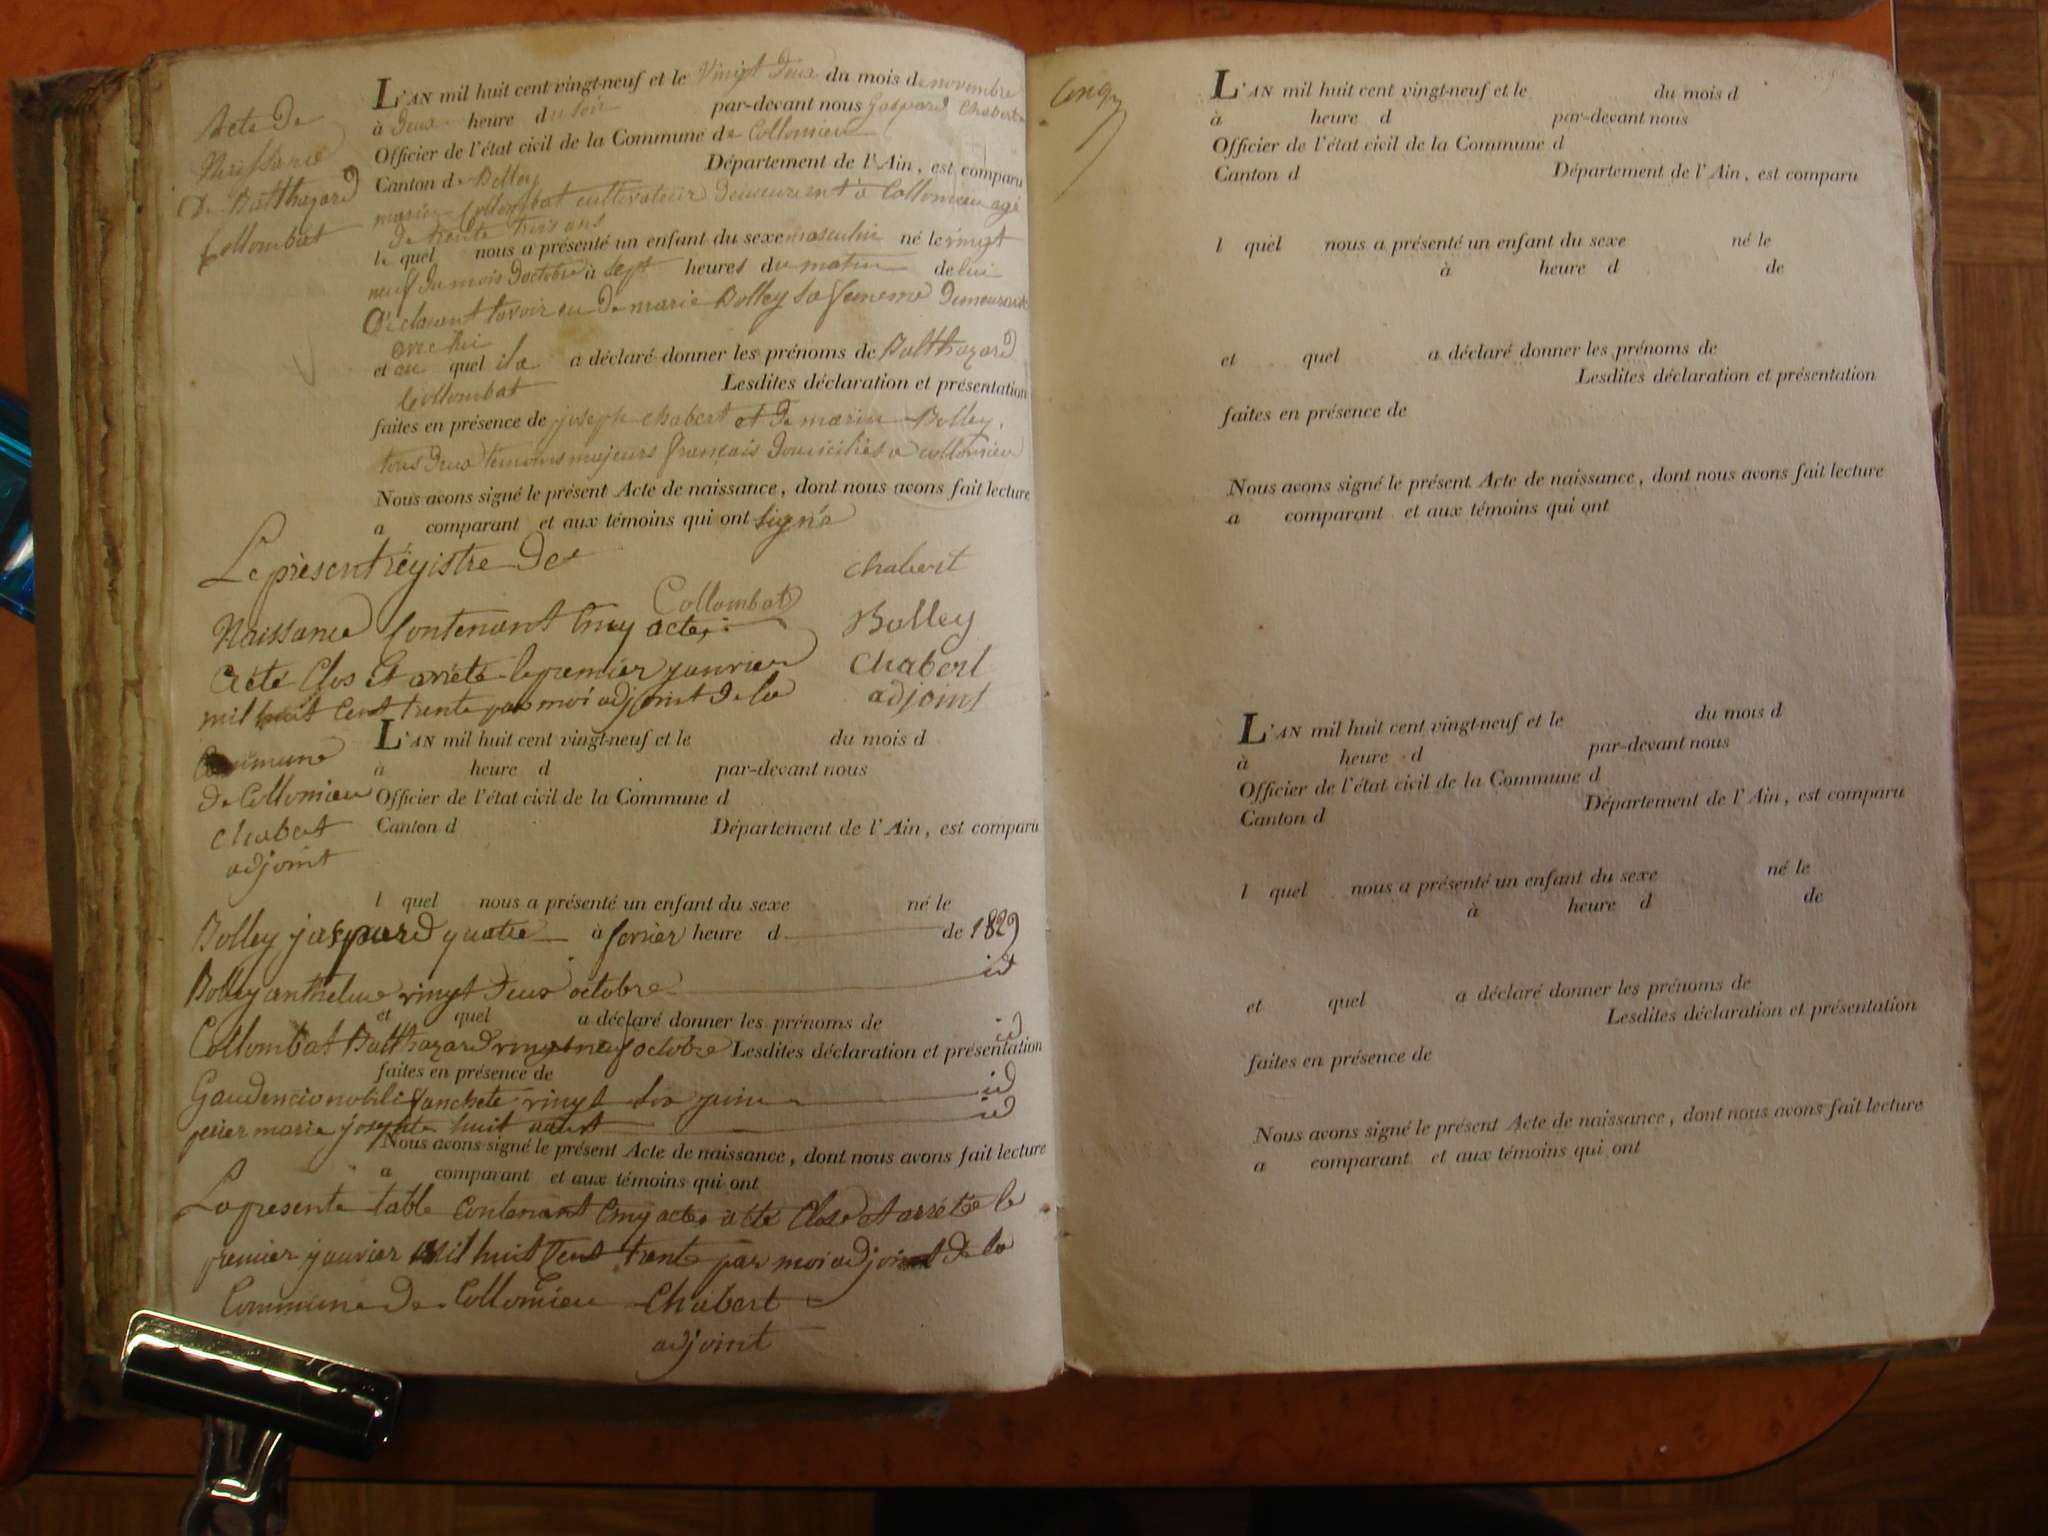 Acte de
Naissance
de Balthazard
Collombat
L'AN mil huit cent vingt-neuf et le vingt deux du mois de novembre
à deux heure du soir par-devant nous Gaspard Chabert
Officier de l'état civil de la Commune de Collomieu
Canton de Belley Département de l'Ain, est comparu
marin Collombat cultivateur demeurent a Collomieu agé
de trente trois ans
le quel nous a présenté un enfant du sexe masculin né le vingt
neuf du mois doctobre à sept heures du matin de lui
déclarent lavoir eu de marie Bolley sa femme demeurant
avec lui
et au quel il a a déclaré donner les prénoms de Balthazard
Collombat Lesdites déclaration et présentation
faites en présence de joseph chabert et de marin Bolley,
tous deux temoins majeurs français domiciliés a collomieu
Nous avons signé le présent Acte de naissance, dont nous avons fait lecture
a comparant et aux témoins qui ont signé
Le présent régistre de chabert
Collombat
Naissance Contenant Cinq actes Bolley
a été Clos Et arrété le premier janvier Chabert
mil huit Cent trente par moi adjoint de la adjoint
Commune
de Collomieu
chabert
adjoint
L'AN mil huit cent vingt-neuf et le du mois d
à heure d par-devant nous
Officier de l'état civil de la Commune d
Canton d Département de l'Ain, est comparu
l quel nous a présenté un enfant du sexe né le
Bolley jaspard quatre à fevrier heure d de 1829
Bolley anthelme vingt deux octobre id
et quel a déclaré donner les prénoms de
Collombat Balthazard vingt neuf octobre id Lesdites déclaration et présentation
faites en présence de
Gaudencio fanchete vingt six juin id
perier marie josephte huit aout id
Nous avons signé le présent Acte de naissance, dont nous avons fait lecture
a comparant et aux témoins qui ont
La presente table Contenant Cinq actes a été Close et arrétée le
premier janvier mil huit Cent trente par moi adjoint de la
Commune de Collomieu Chabert
adjoint
Cinq
L'AN mil huit cent vingt-neuf et le du mois d
à heure d par-devant nous
Officier de l'état civil de la Commune d
Canton d Département de l'Ain, est comparu
l quel nous a présenté un enfant du sexe né le
à heure d de
et quel a déclaré donner les prénoms de
Lesdites déclaration et présentation
faites en présence de
Nous avons signé le présent Acte de naissance, dont nous avons fait lecture
a comparant et aux témoins qui ont
L'AN mil huit cent vingt-neuf et le du mois d
à heure d par-devant nous
Officier de l'état civil de la Commune d
Canton d Département de l'Ain, est comparu
l quel nous a présenté un enfant du sexe né le
à heure d de
et quel a déclaré donner les prénoms de
Lesdites déclaration et présentation
faites en présence de
Nous avons signé le présent Acte de naissance, dont nous avons fait lecture
a comparant et aux témoins qui ont